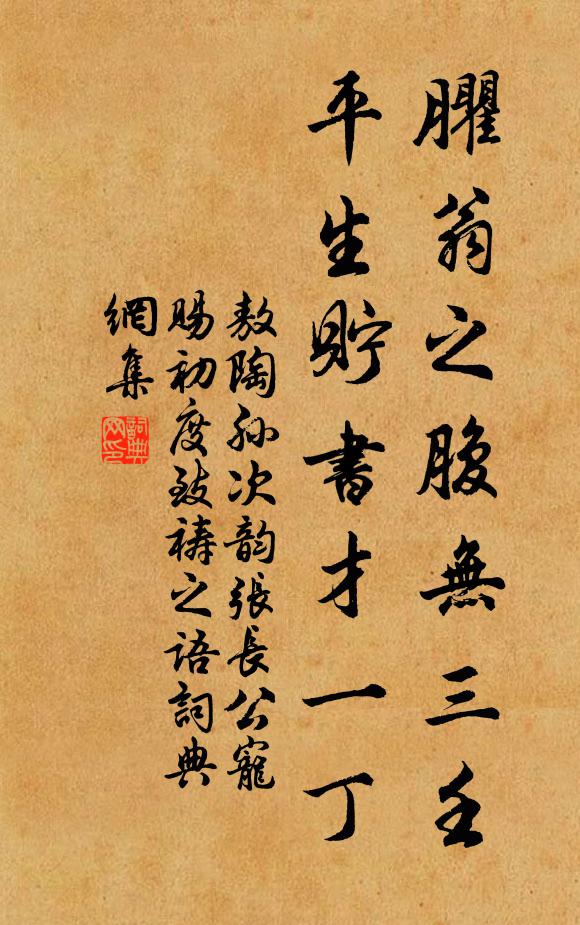 臞翁之腹無三壬
平生貯書才一丁
敖陶孫次韵張長公寵
賜初度致禱之语詞典
網集
詞典
网印